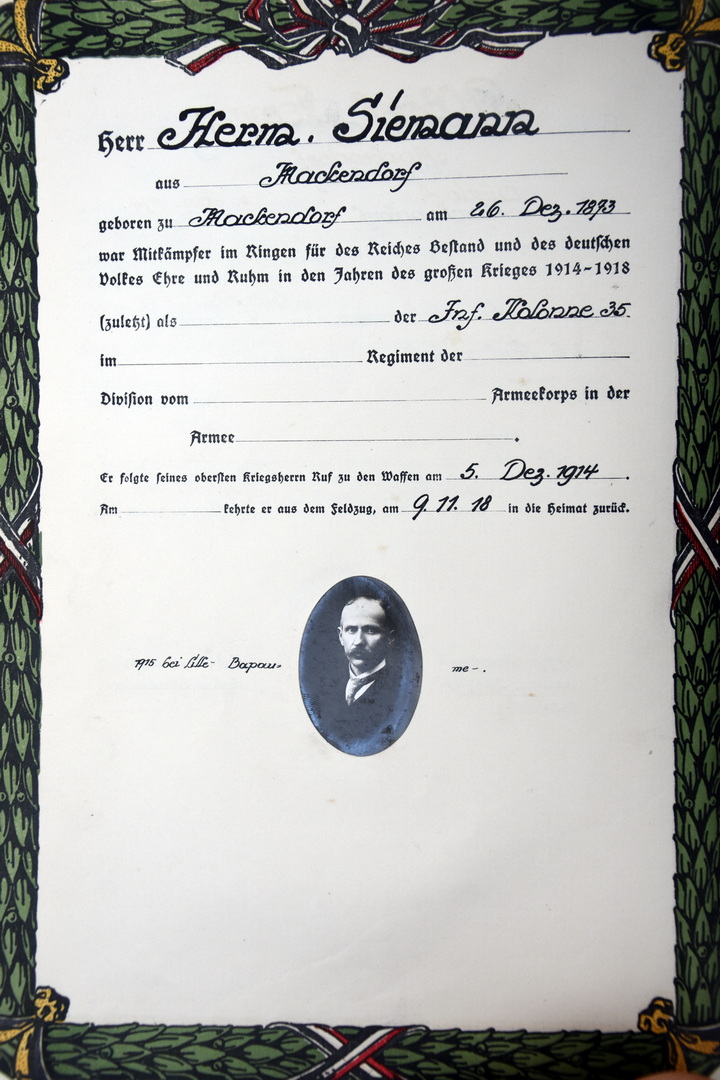 Herr Herm. Siemann
aus Mackendorf
geboren zu Mackendorf am 26. Dez. 1893
war Mitkämpfer im Ringen für des Reiches Bestand und des deutschen
Volkes Ehre und Ruhm in den Jahren des großen Krieges 1914-1918
(zuletzt) als der Inf. Kolonne 35.
im Regiment der
Division vom Armeekorps in der
Armee .
Er folgte seines obersten Kriegsherrn Ruf zu den Waffen am 5. Dez. 1914 .
Am kehrte er aus dem Feldzug, am 9. 11. 18 in die Heimat zurück.
1915 bei Lille- Bapau= me-.